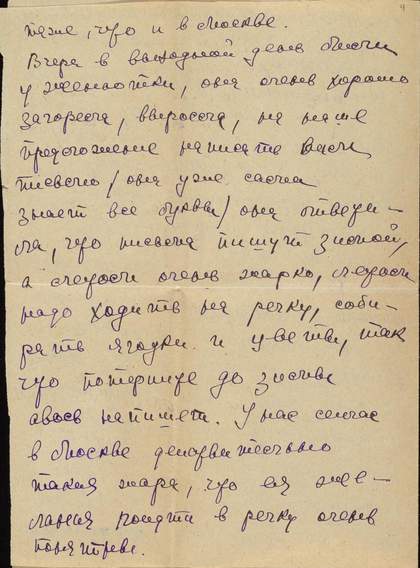 4
тоже, что и в Москве.
Вчера в выходной день были
у Женютки, она очень хорошо
загорела, выросла, на наше
предложение написать Вам
письмо / она уже сама
знает все буквы / она ответи-
ла, что письма пишут зимой,
а сейчас очень жарко, сейчас
надо ходить на речку, соби-
рать ягодки и цветы, так
что потерпите до зимы
авось напишет. У нас сейчас
в Москве действительно
такая жара, что ея же-
лания пойти в речку очень
понятны.